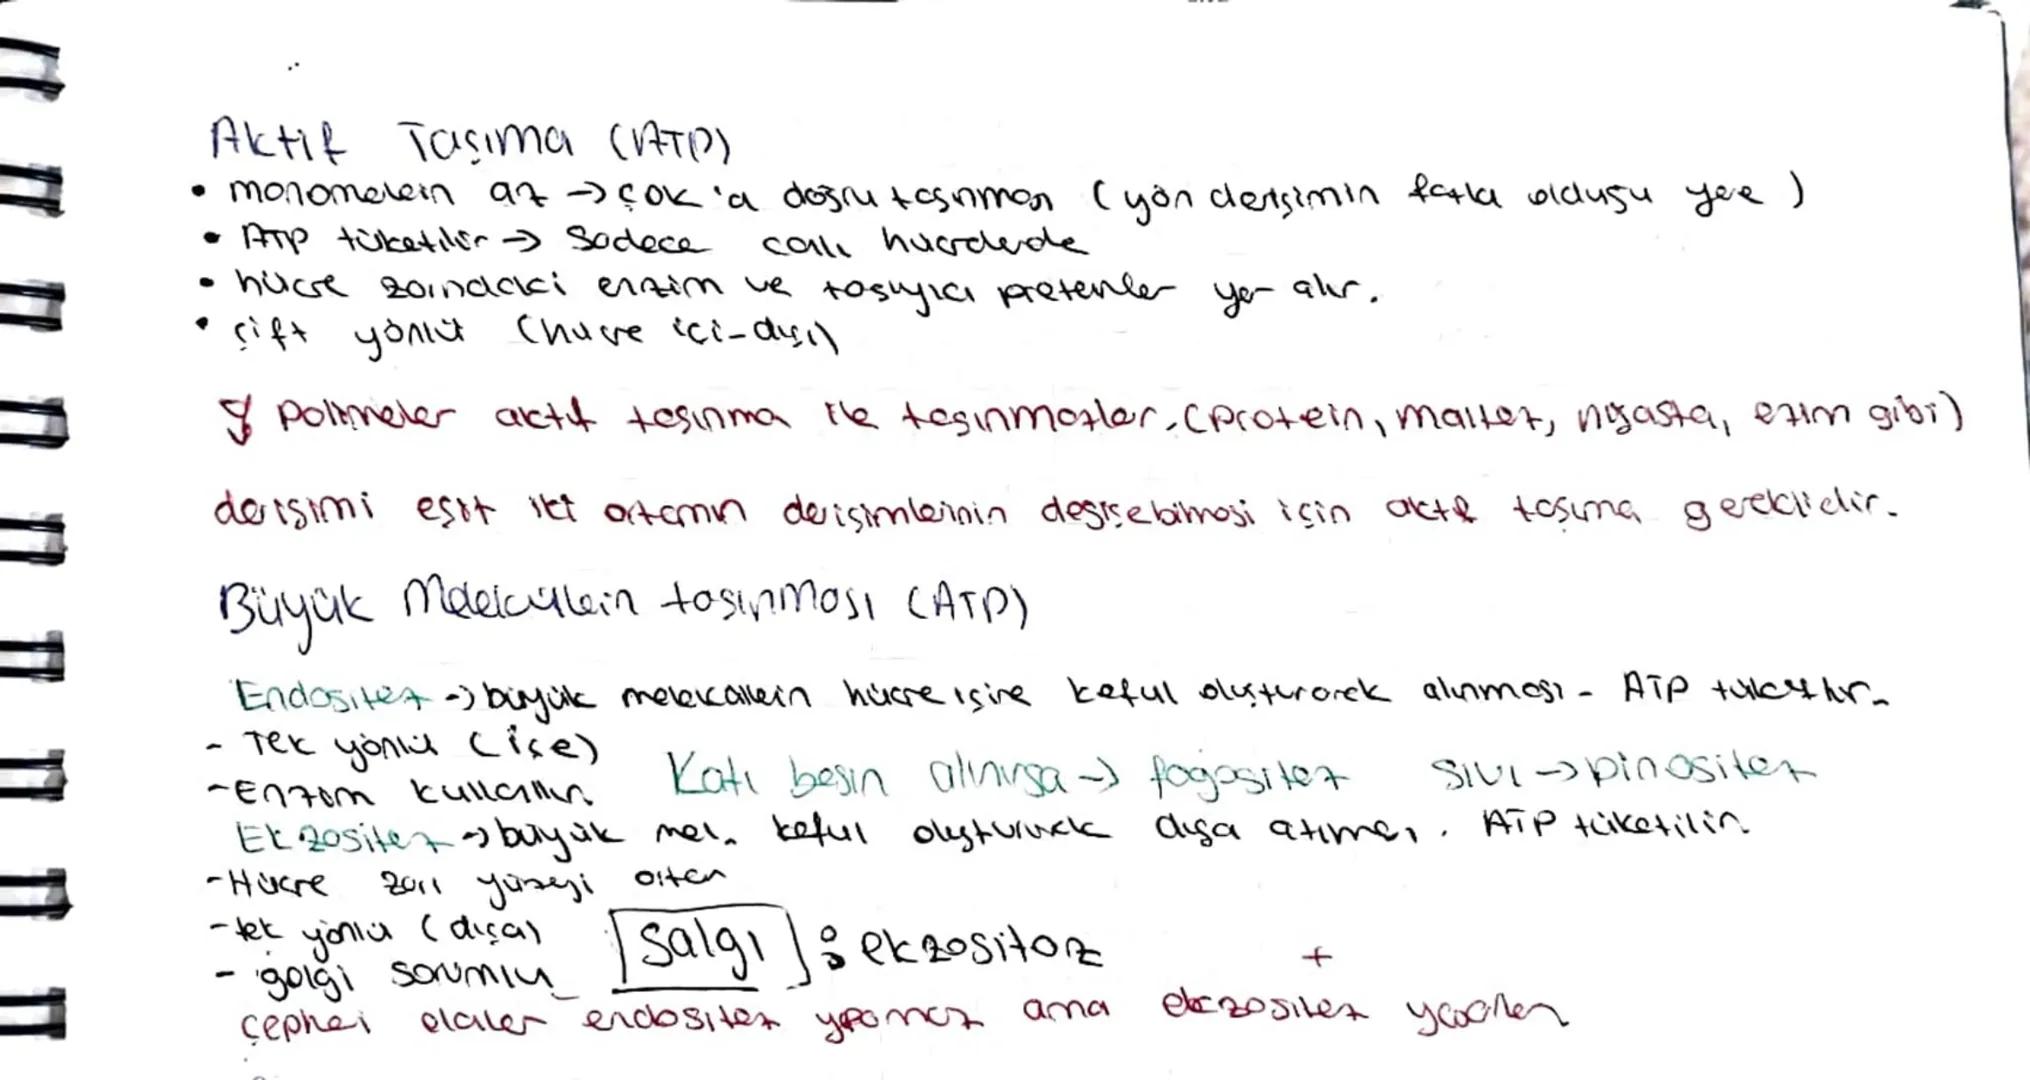 Aktif Taşıma (ATP)
• monomelerin az → çok 'a doğru taşınması (yön derişimin fazla olduğu yere)
• ATP tüketilir → Sadece canlı hücrelerde
• hücre zarındaki enzim ve taşıyıcı proteinler yer alır.
• çift yönlü (hücre içi-dışı)
polimeler aktif taşınma ile taşınmazlar. (protein, maltoz, nişasta, ezim gibi)
derişimi eşit iki ortamın derişimlerinin değişebilmesi için aktif taşıma gereklidir.
Büyük Moleküllerin taşınması (ATP)
Endositoz → büyük moleküllerin hücre içine koful oluşturarak alınması - ATP tüketilir.
- Tek yönlü (içe)
- Enzim kullanılır. Katı besin alınırsa → fagositoz SIVI → pinositoz
Ekzositoz → büyük mol. koful oluşturarak dışa atımı. ATP tüketilir.
- Hücre zarı yüzeyi artar
- tek yönlü (dışa)
- golgi sorumlu Salgı : ekzositoz
+
çeperli olanlar endositoz yapamaz ama ekzositoz yaparlar